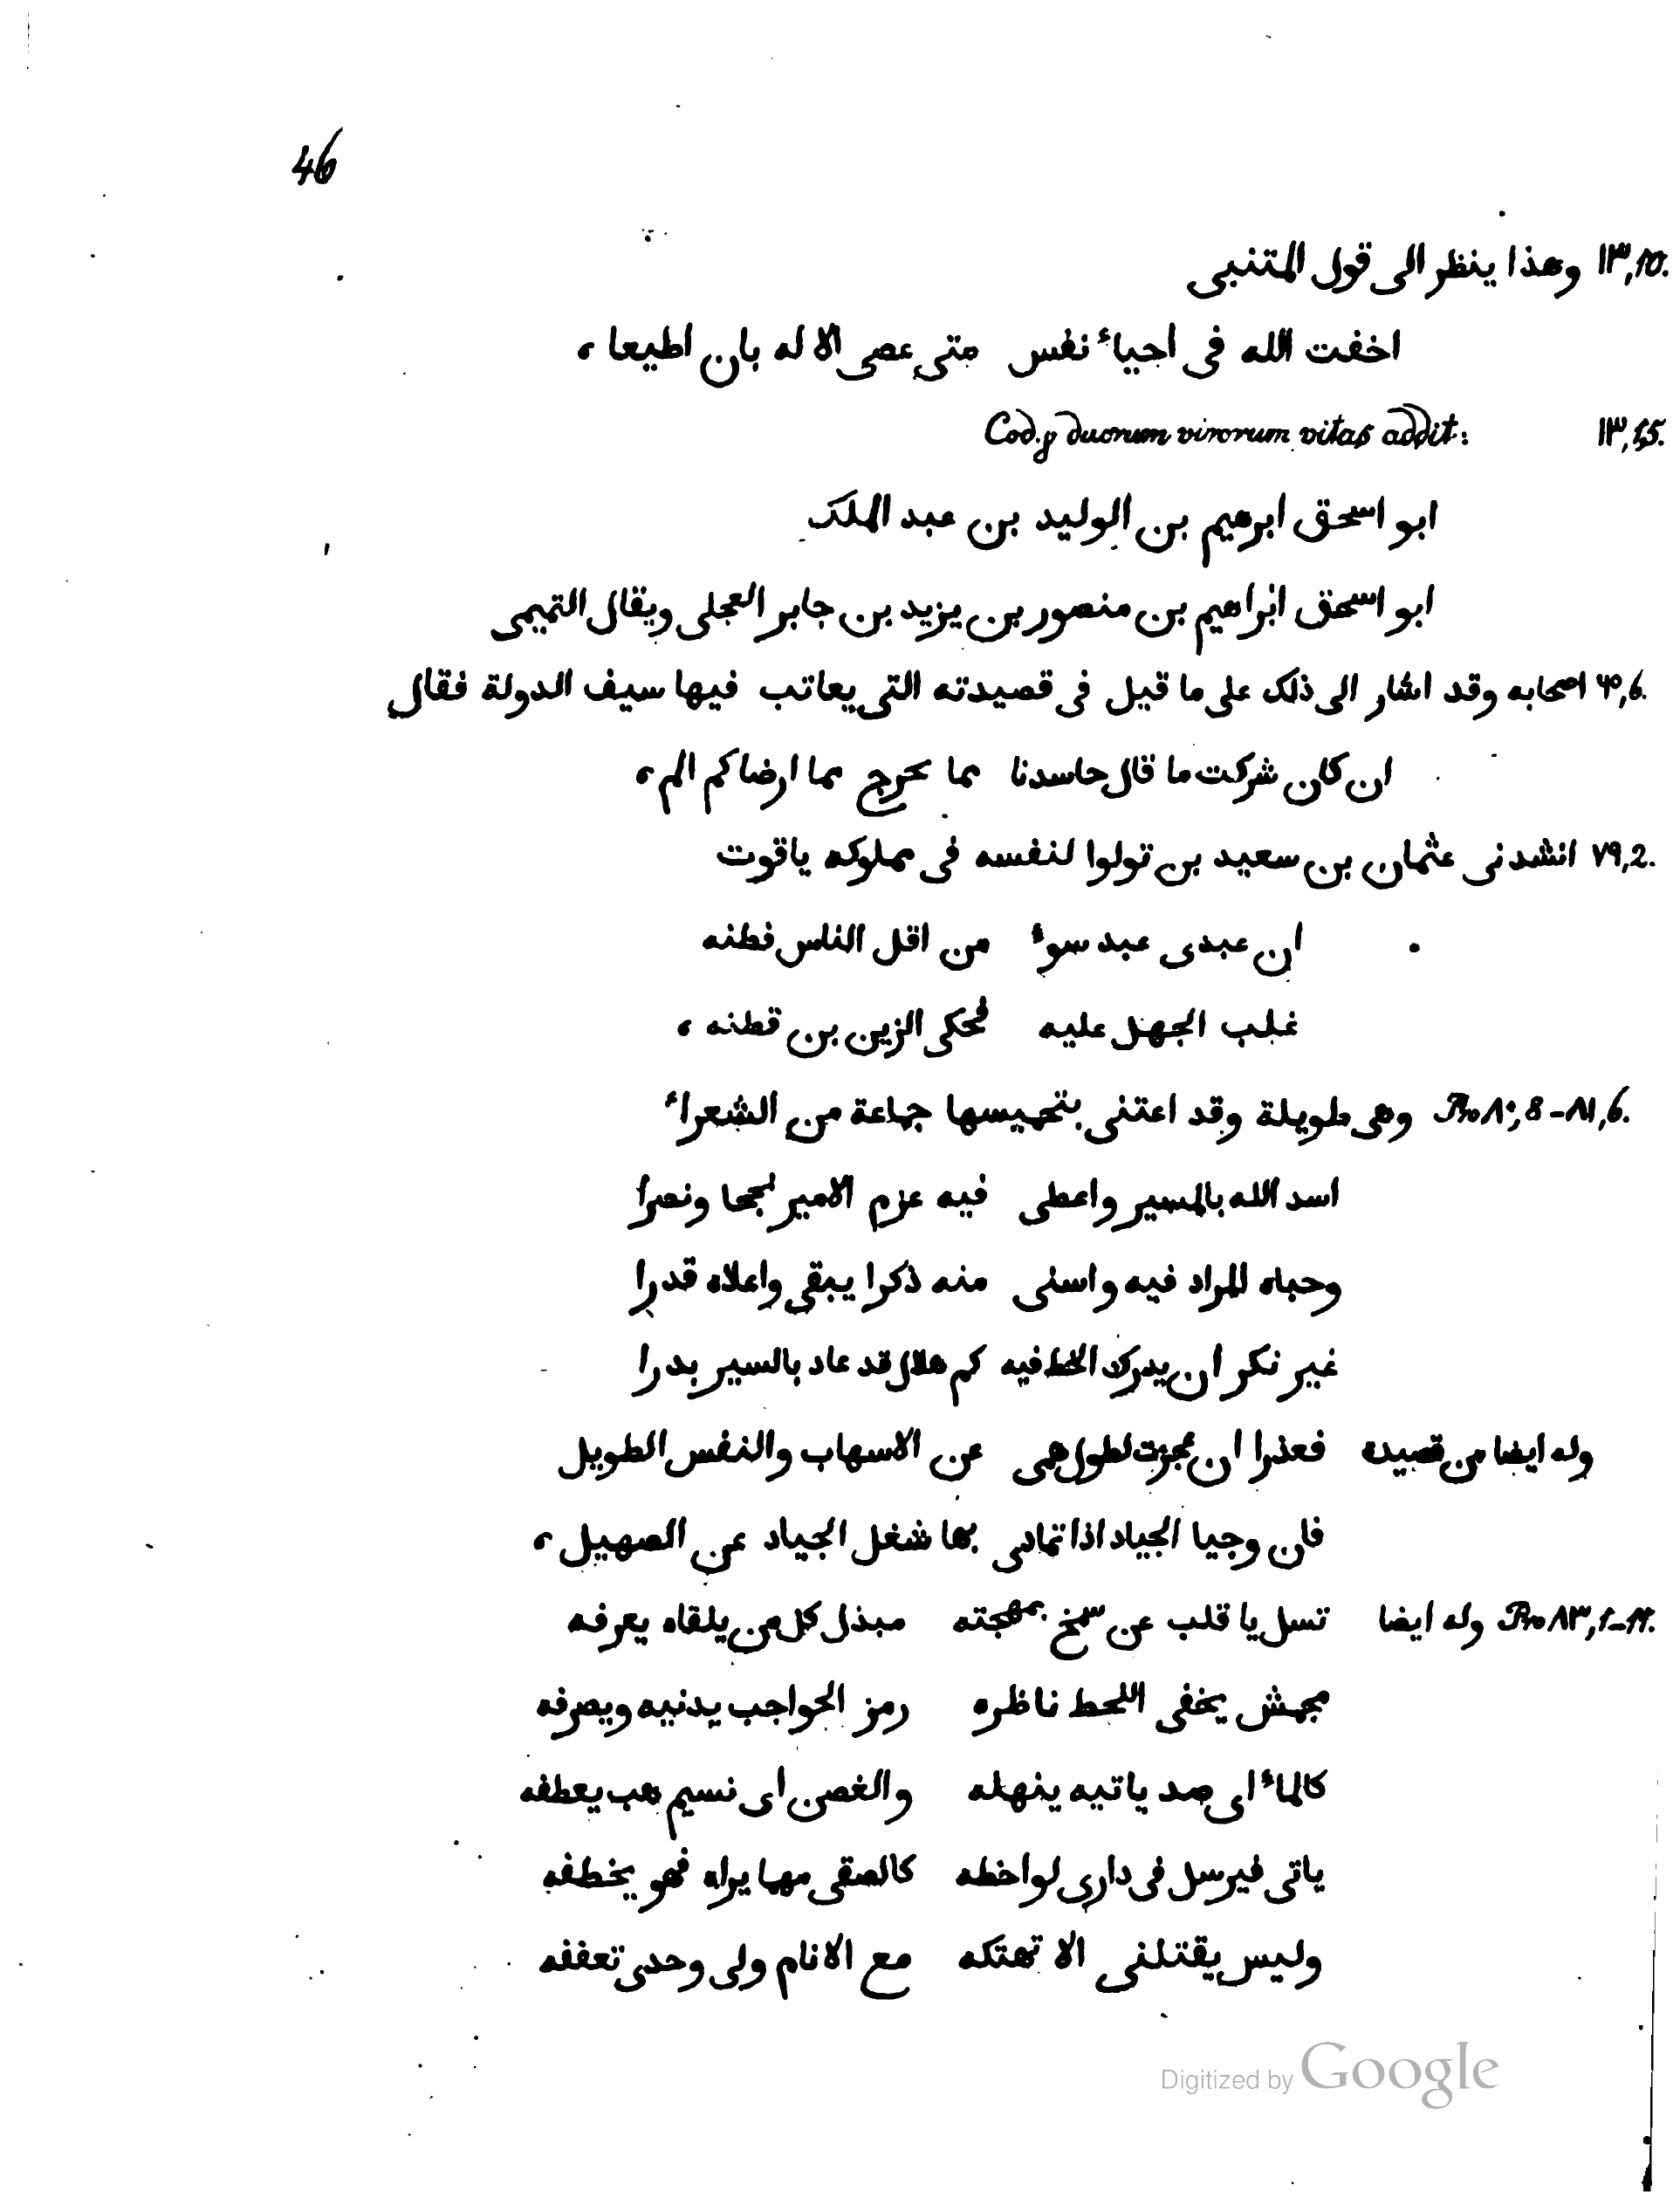 46
١٣,10. وهذا ينظر الى قول المتنبى
اخفت الله فى احياء نفس متى عصى الاله بان اطيعا،
١٣,15. Cod. g duorum virorum vitas addit:
ابو اسحق ابرهيم بن الوليد بن عبد الملك
ابو اسحق ابراهيم بن منصور بن يزيد بن جابر العجلى ويقال التميمى
اصحابه وقد اشار الى ذلك على ما قيل فى قصيدته التى يعاتب فيها سيف الدولة فقال
ان كان شركت ما قال حاسدنا مما بحرج مما ارضاكم الم،
٧٩,2. انشدنى عثمان بن سعيد بن تولوا لنفسه فى مملوكه ياقوت
ان عبدى عبد سوء من اقل الناس فطنه
غلب الجهل عليه فحكى الزين بن قطنه،
Pro ٨٠,8-٨١,6. وهى طويلة وقد اعتنى بتخميسها جماعة من الشعراء
اسد الله بالمسير واعطى فيه عزم الامير نجحا ونصرا
وحباه المراد فيه واسنى منه ذكرا يبقى واعلاه قدرا
غير نكر ان يدرك الحظ فيه كم هلال قد عاد بالسير بدرا
وله ايضا من قصيدة فعذرا ان عجزت لطول همى عن الاسهاب والنفس الطويل
فان وجيا الجياد اذا تمادى بها شغل الجياد عن الصهيل،
Pro ٨٣,1-11. وله ايضا تسل يا قلب عن سمح بمهجته مبذل كل من يلقاه يعرفه
مجمش يخفى اللحط ناظره رمز الحواجب يدنيه ويصرفه
كالماء اى صد ياتيه ينهله والغصن اى نسيم هب يعطفه
ياتى فيرسل فى دارى لواخطه كالصقى مهما يراه فهو يخطفه
وليس يقتلنى الا تهتكه مع الانام ولى وحدى تعففه
Digitized by Google